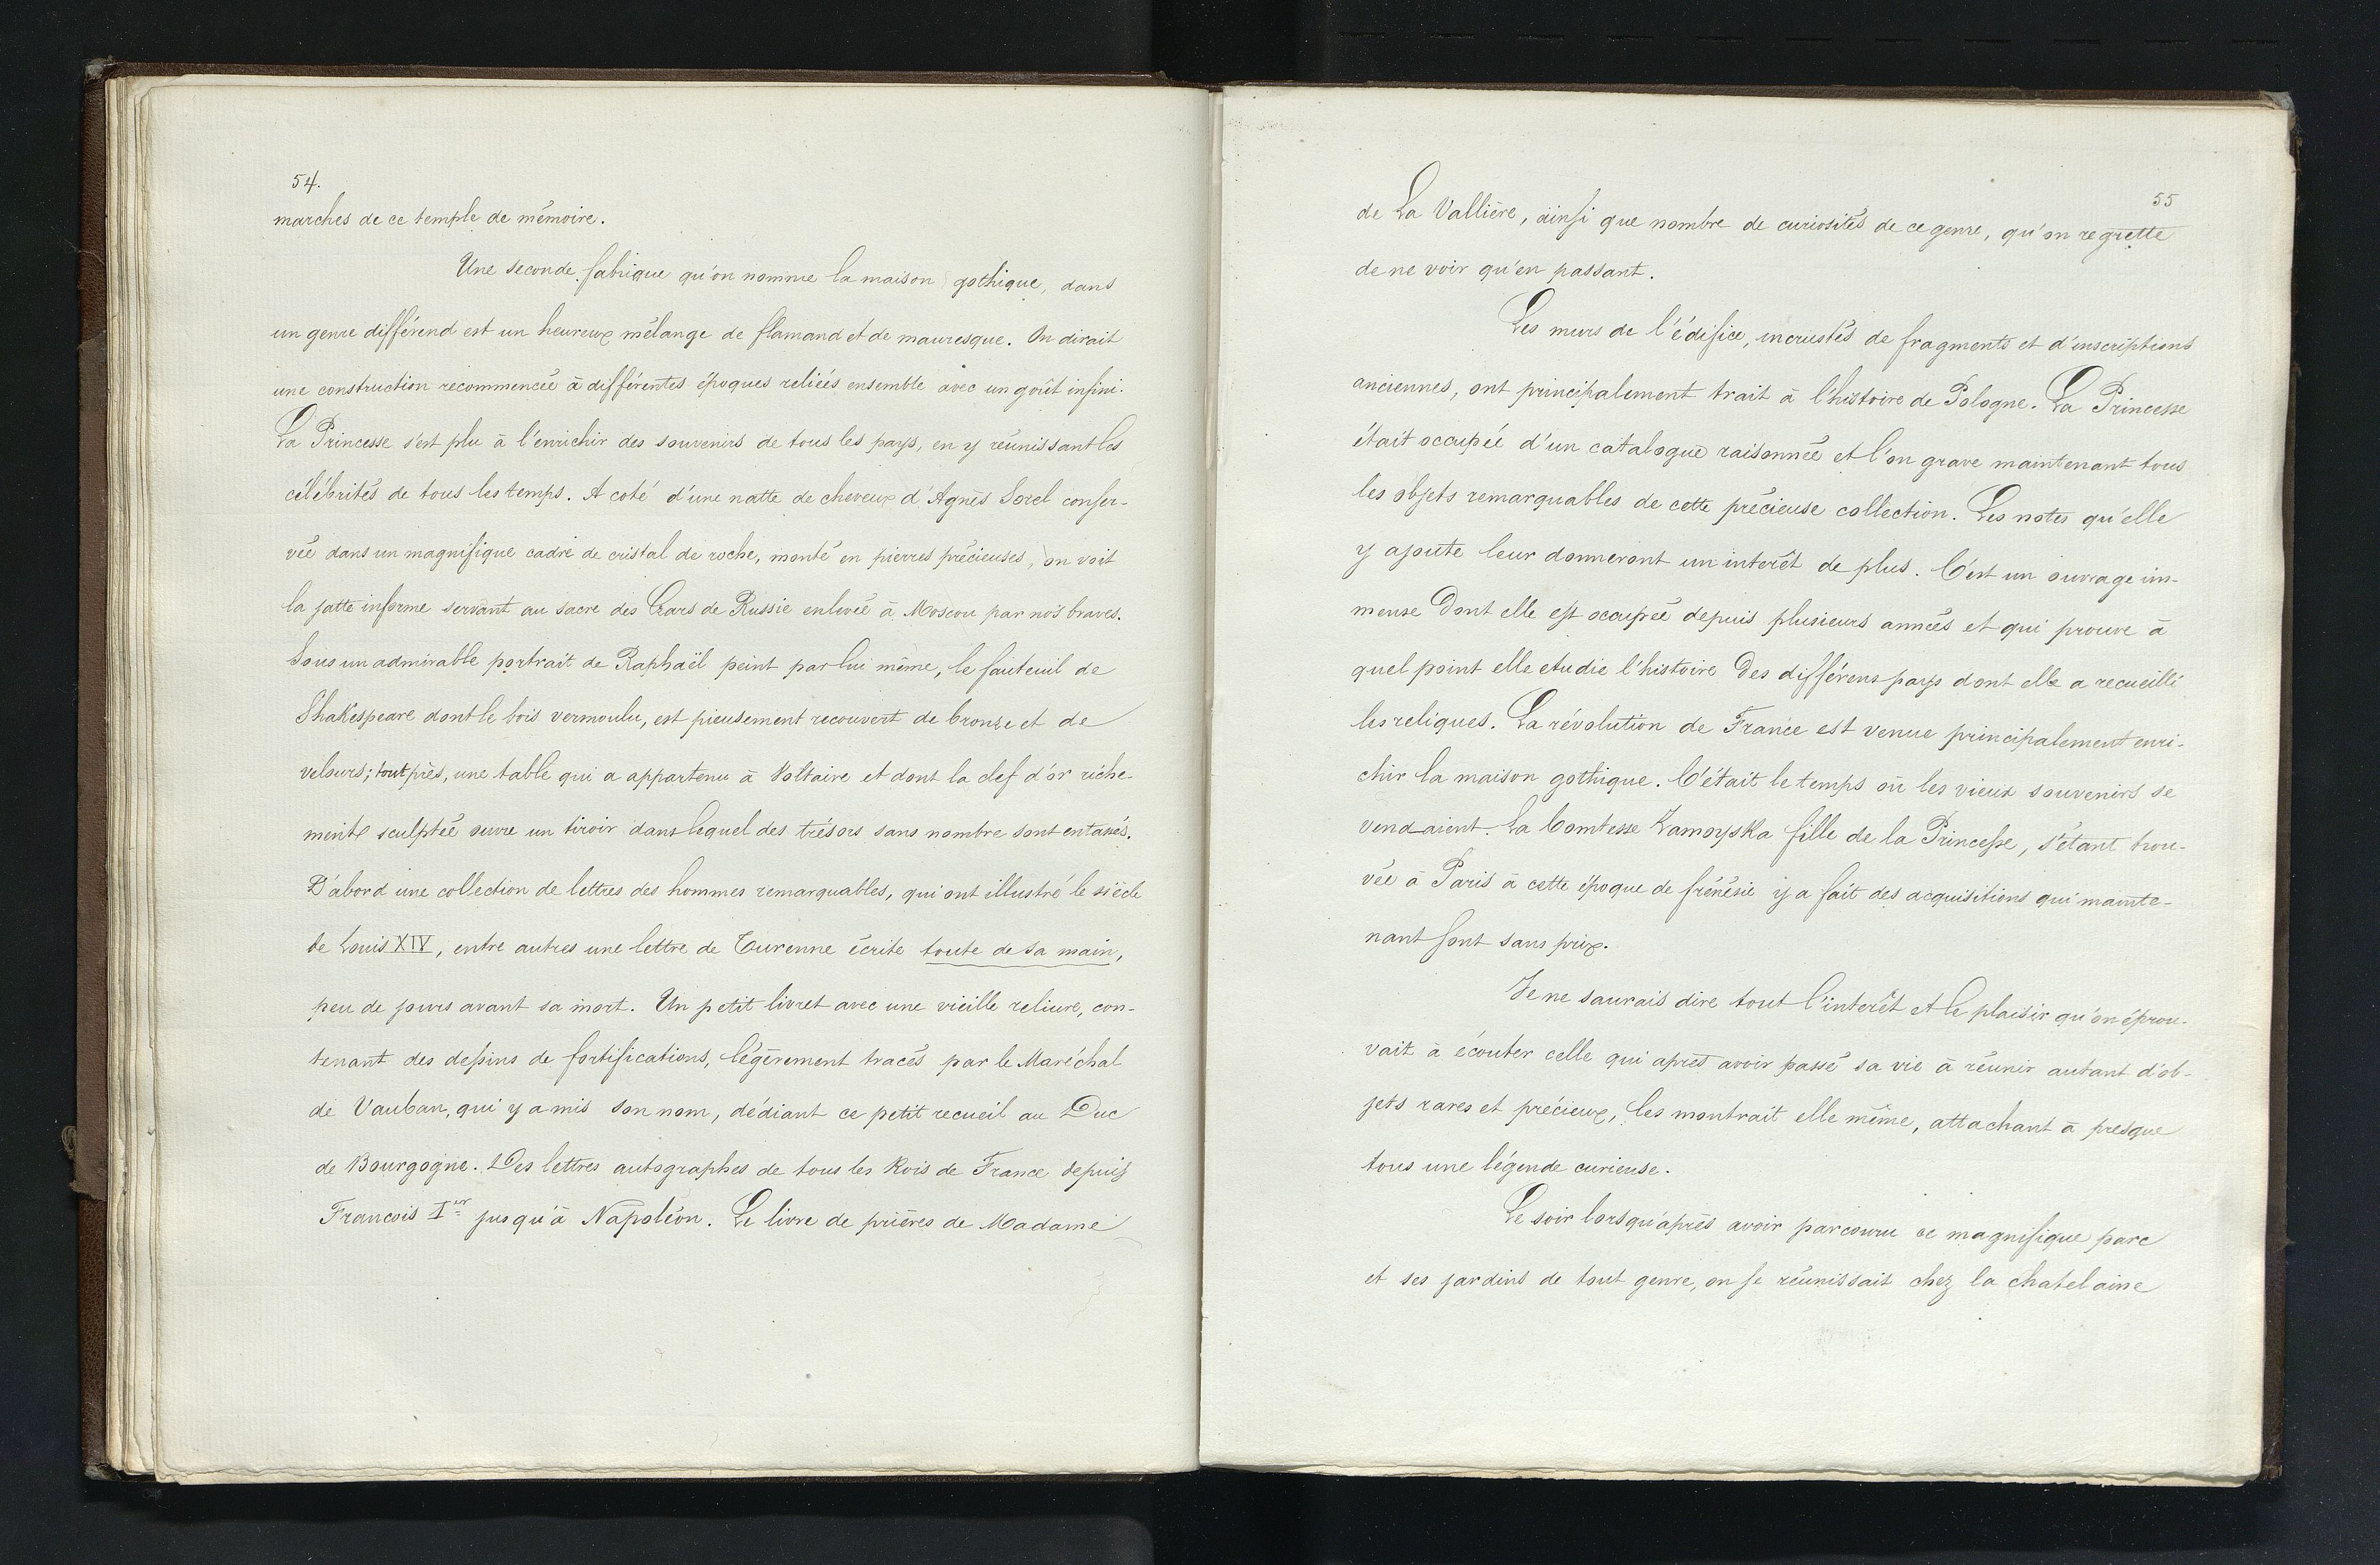 54.
marches de ce temple de mémoire.
Une seconde fabrique qu'on nomme la maison gothique, dans
un genre différend est un heureux mélange de flamand et de mauresque. On dirait
une construction recommencée à différentes époques reliées ensemble avec un goût infini.
La Princesse s'est plu à l'enrichir des souvenirs de tous les pays, en y réunissant les
célébrités de tous les temps. A coté d'une natte de cheveux d'Agnès Sorel conser-
vée dans un magnifique cadre de cristal de roche, monté en pierres précieuses, on voit
la jatte informe servant au sacre des Czars de Russie enlevée à Moscou par nos braves.
Sous un admirable portrait de Raphaël peint par lui même, le fauteuil de
Shakespeare dont le bois vermoulu, est pieusement recouvert de bronze et de
velours; tout près, une table qui a appartenu à Voltaire et dont la clef d'or riche
ment sculptée ouvre un tiroir dans lequel des trésors sans nombre sont entassés.
D'abord une collection de lettres des hommes remarquables, qui ont illustré le siècle
de Louis XIV, entre autres une lettre de Turenne écrite toute de sa main,
peu de jours avant sa mort. Un petit livret avec une vieille reliure, con-
tenant des dessins de fortifications, légèrement tracés par le Maréchal
de Vauban, qui y a mis son nom, dédiant ce petit recueil au Duc
de Bourgogne. Des lettres autographes de tous les Rois de France depuis
Francois Ier jusqu'à Napoléon. Le livre de prières de Madame
55
de La Vallière, ainsi que nombre de curiosités de ce genre, qu'on regrette
de ne voir qu'en passant.
Les murs de l'édifice, incrustés de fragments et d'inscriptions
anciennes, ont principalement trait à l'histoire de Pologne. La Princesse
était occupée d'un catalogue raisonnée et l'on grave maintenant tous
les objets remarquables de cette précieuse collection. Les notes qu'elle
y ajoute leur donneront un interêt de plus. C'est un ouvrage im-
mense dont elle est occupée depuis plusieurs années et qui prouve à
quel point elle etudie l'histoire des différens pays dont elle a recueilli
les reliques. La révolution de France est venue principalement enri-
chir la maison gothique. C'était le temps où les vieux souvenirs se
vendaient. La Comtesse Zamoyska fille de la Princesse, s'étant trou-
vée à Paris à cette époque de frénésie y a fait des acquisitions qui mainte-
nant sont sans prix.
Je ne saurais dire tout l'interêt et le plaisir qu'on éprou-
vait à écouter celle qui apres avoir passé sa vie à réunir autant d'ob-
jets rares et précieux, les montrait elle même, attachant à presque
tous une légende curieuse.
Le soir lorsqu'après avoir parcouru ce magnifique parc
et ses jardins de tout genre, on se réunissait chez la chatelaine